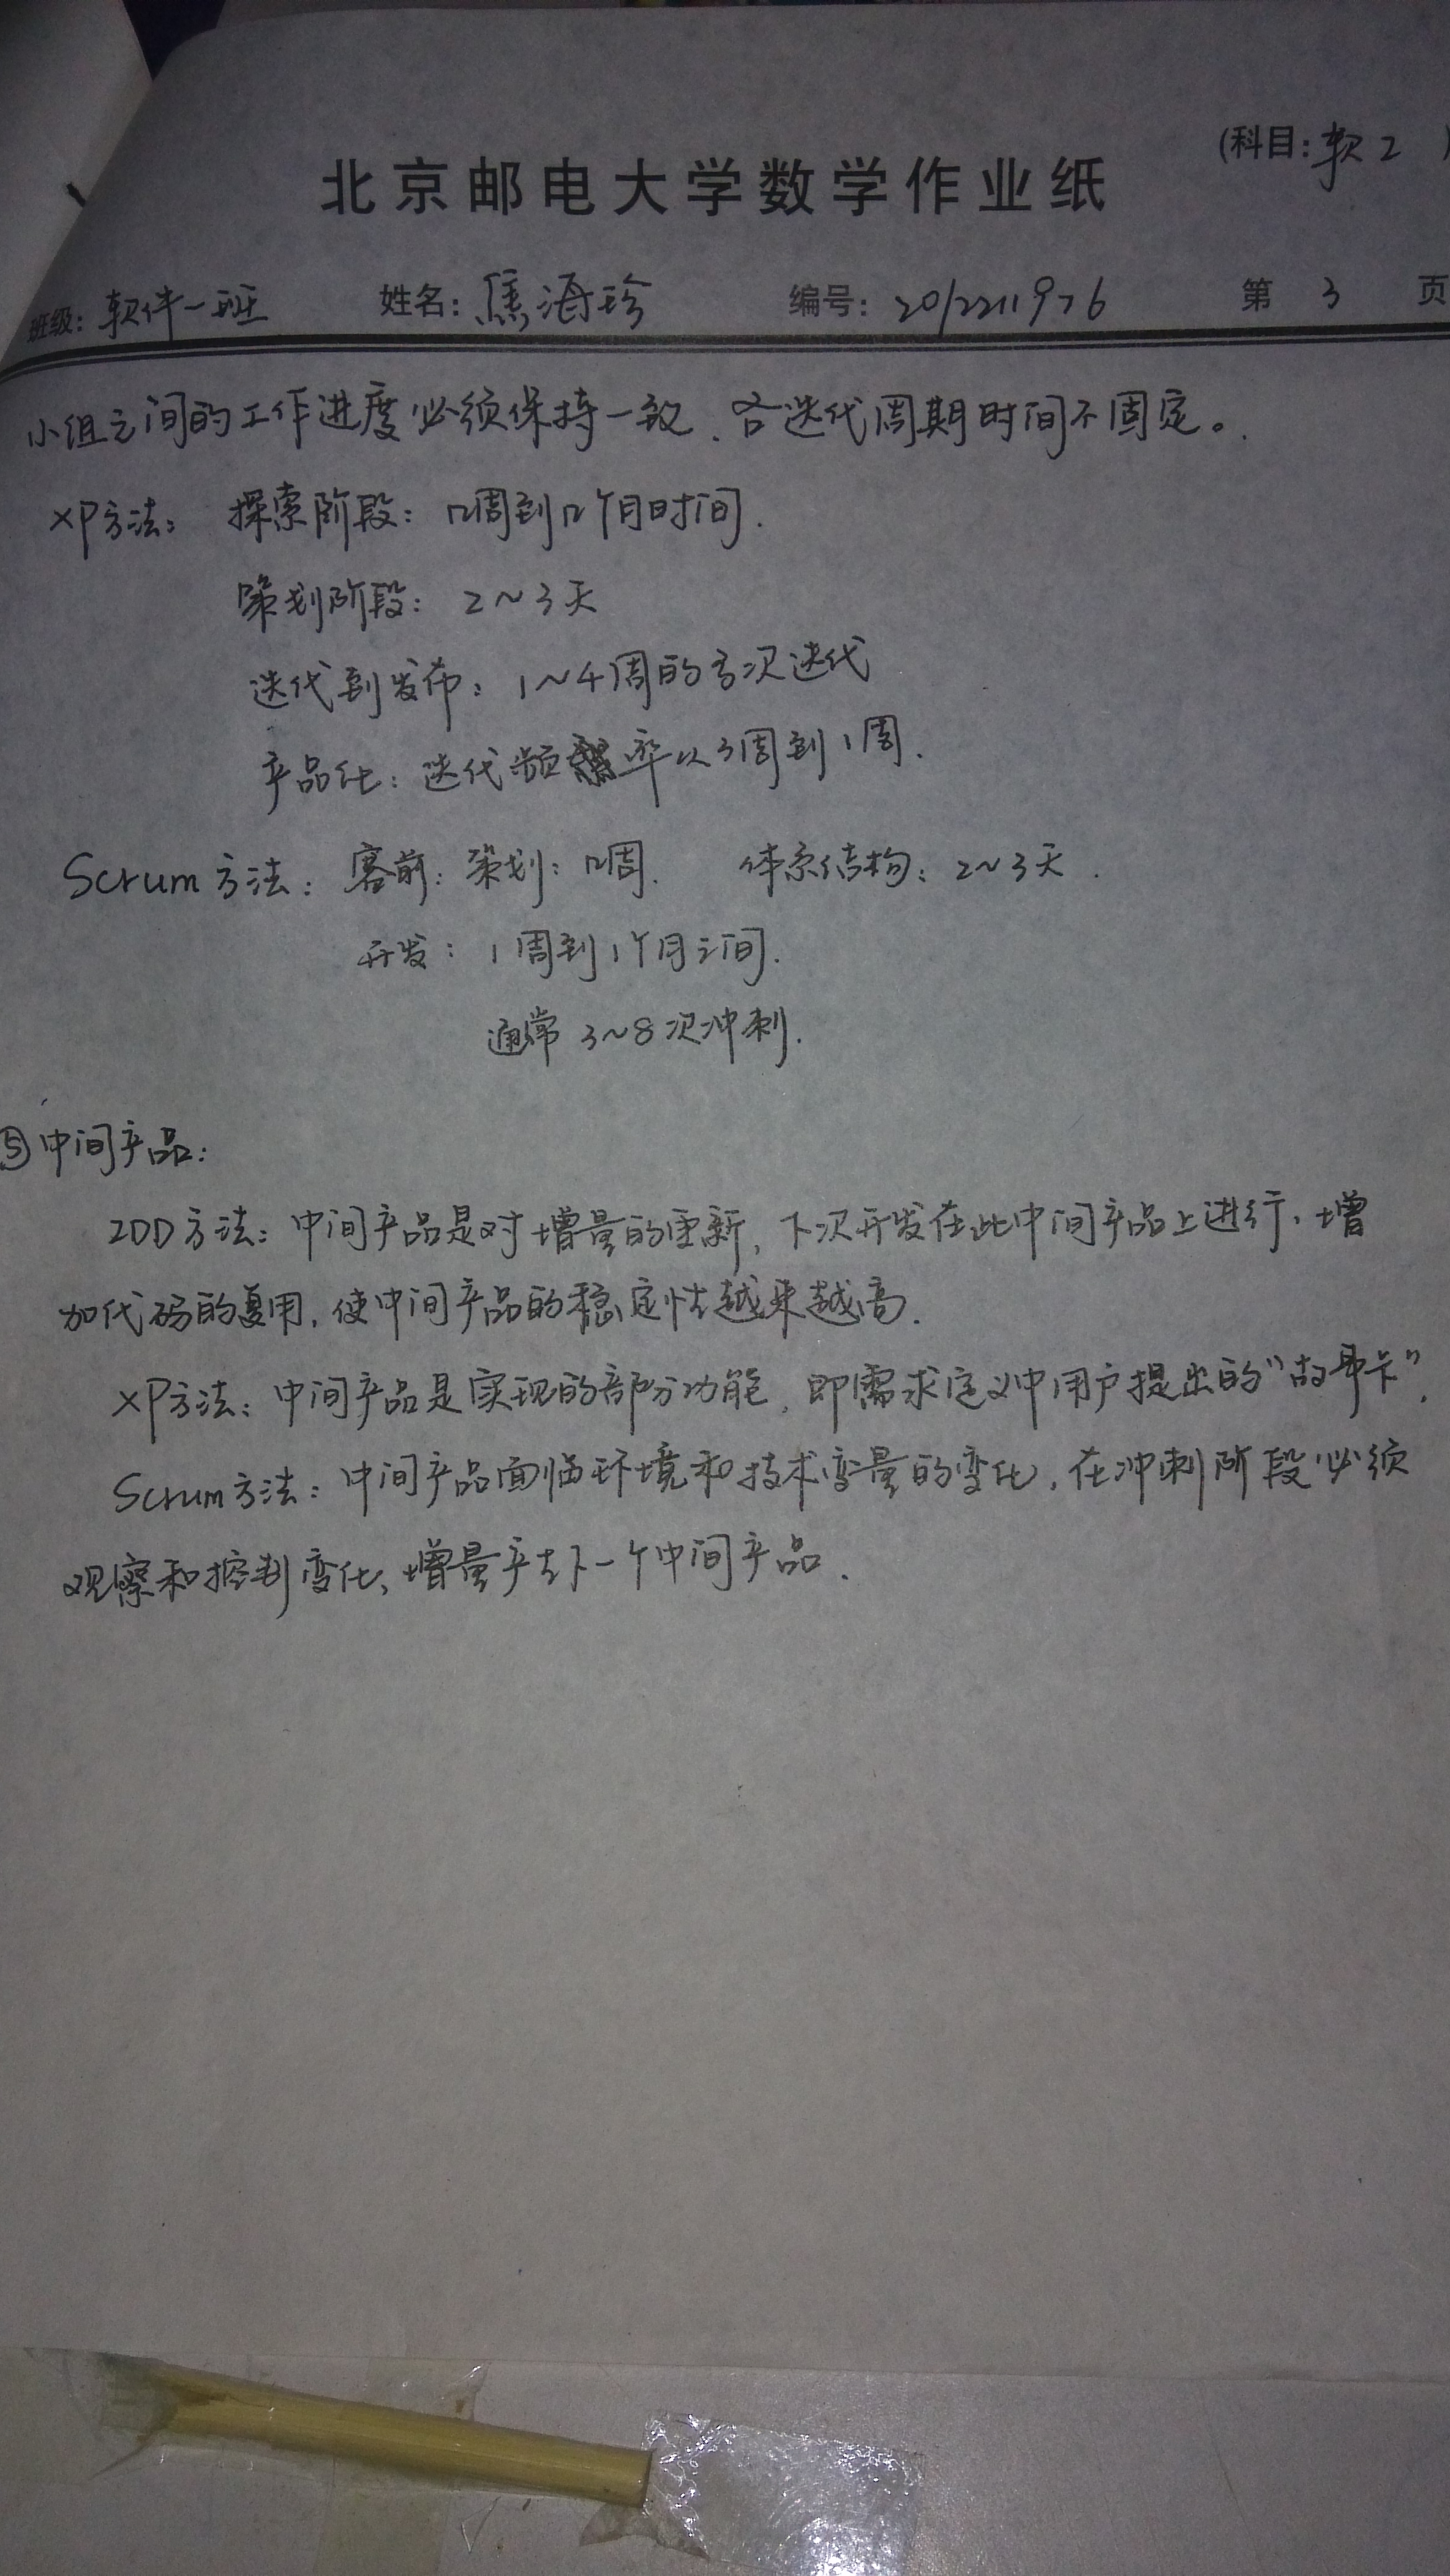 (科目:软工 )
北京邮电大学数学作业纸
班级:软件一班 姓名:焦海珍 编号:2012211976 第 3 页
小组之间的工作进度必须保持一致、各迭代周期时间不固定。
XP方法: 探索阶段: 几周到几个月时间.
策划阶段: 2~3天
迭代到发布: 1~4周的首次迭代
产品化: 迭代频率从3周到1周.
Scrum方法: 赛前: 策划: 几周. 体系结构: 2~3天.
开发: 1周到1个月之间.
通常3~8次冲刺.
⑤中间产品:
IDD方法: 中间产品是对增量的更新, 下次开发在此中间产品上进行, 增
加代码的复用, 使中间产品的稳定性越来越高.
XP方法: 中间产品是实现的部分功能, 即需求定义中用户提出的“故事卡”.
Scrum方法: 中间产品面临环境和技术变量的变化, 在冲刺阶段必须
观察和控制变化, 增量产生下一个中间产品.